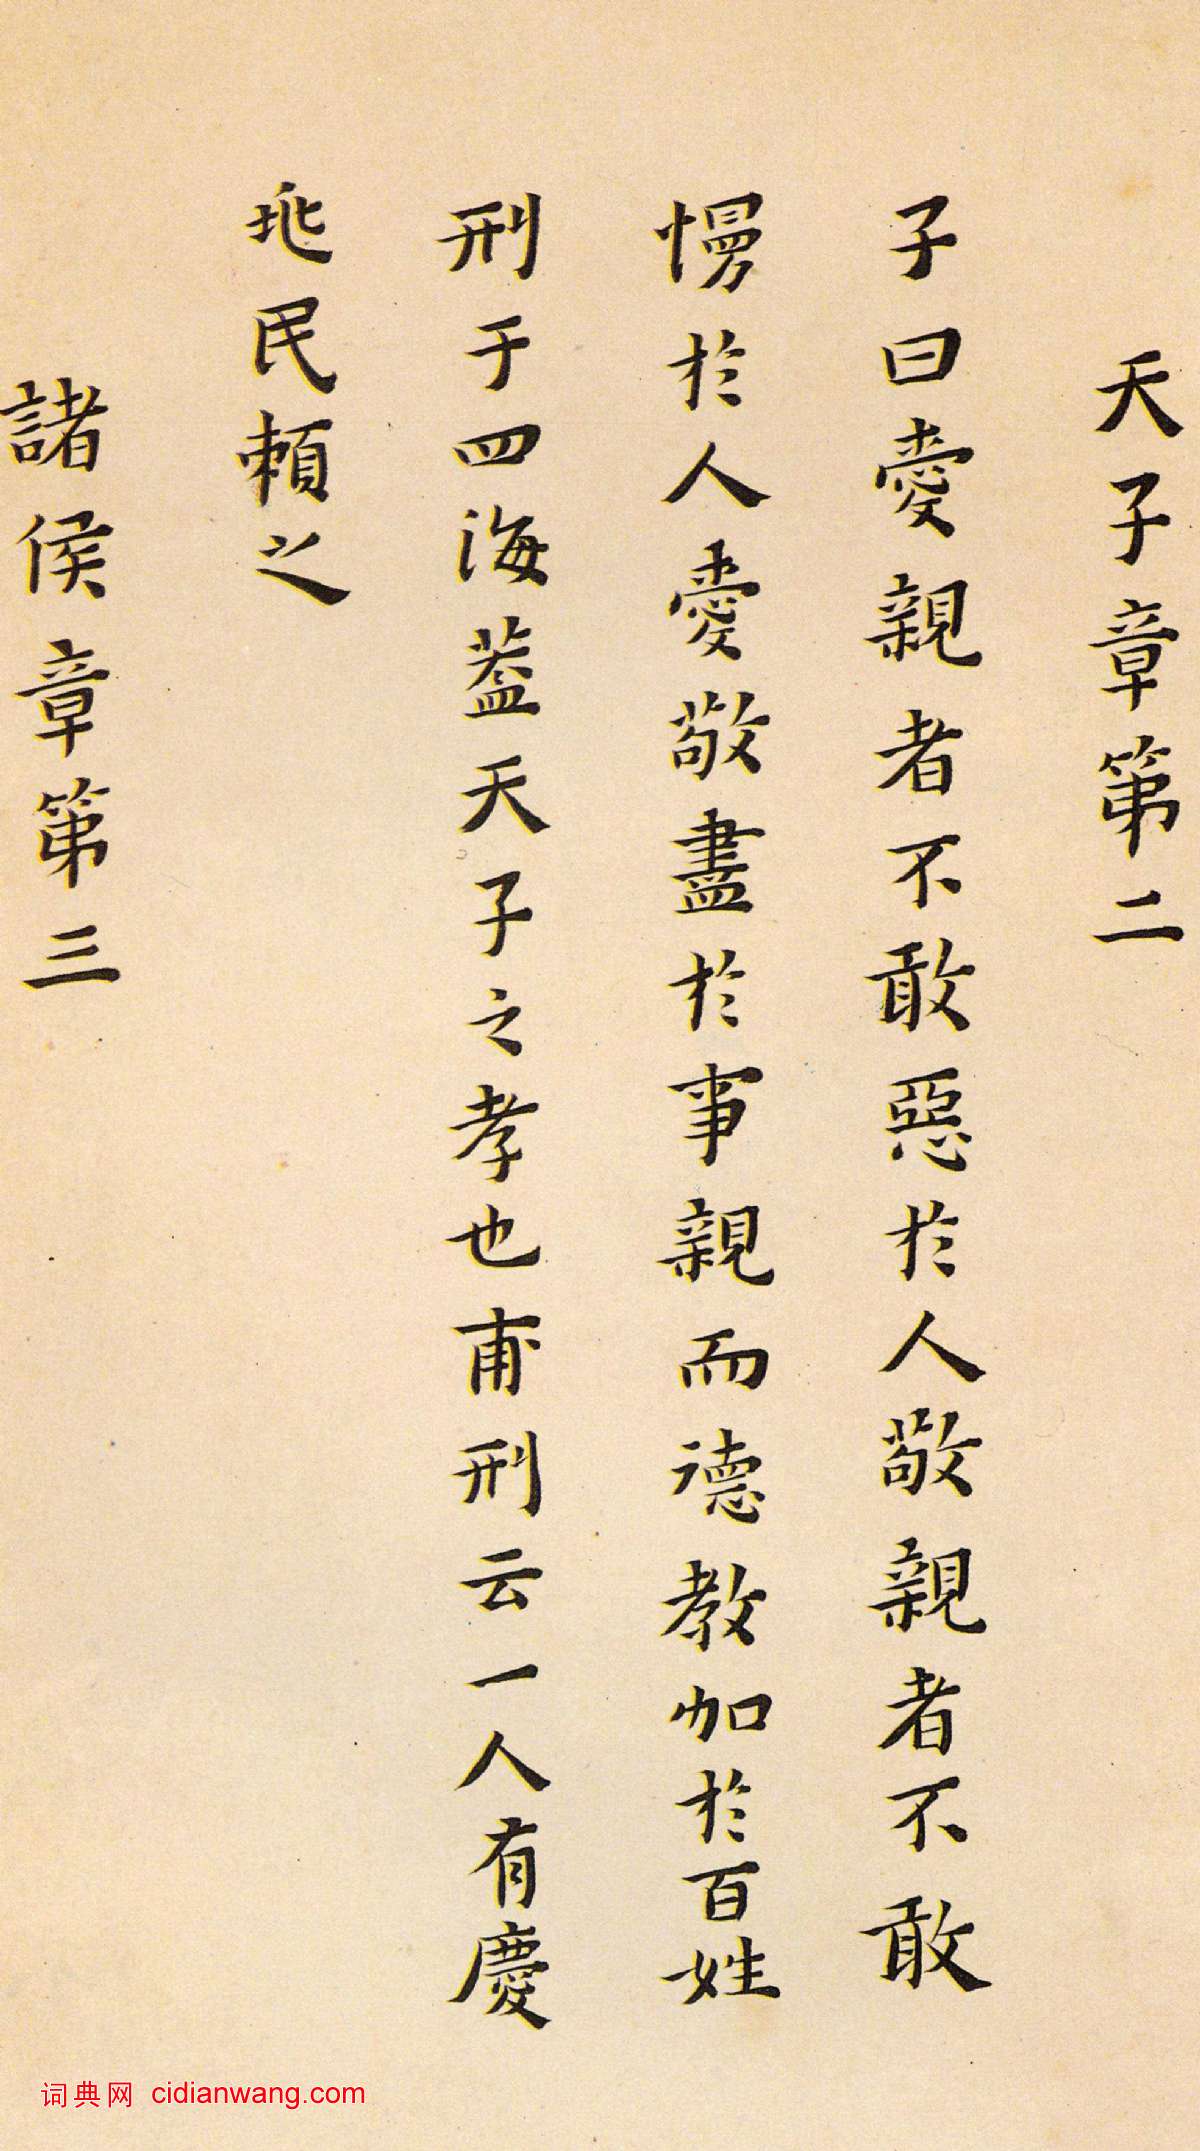 天子章第二
子曰愛親者不敢惡於人敬親者不敢
慢於人愛敬盡於事親而德教加於百姓
刑于四海蓋天子之孝也甫刑云一人有慶
兆民賴之
諸侯章第三
词典网 cidianwang.com